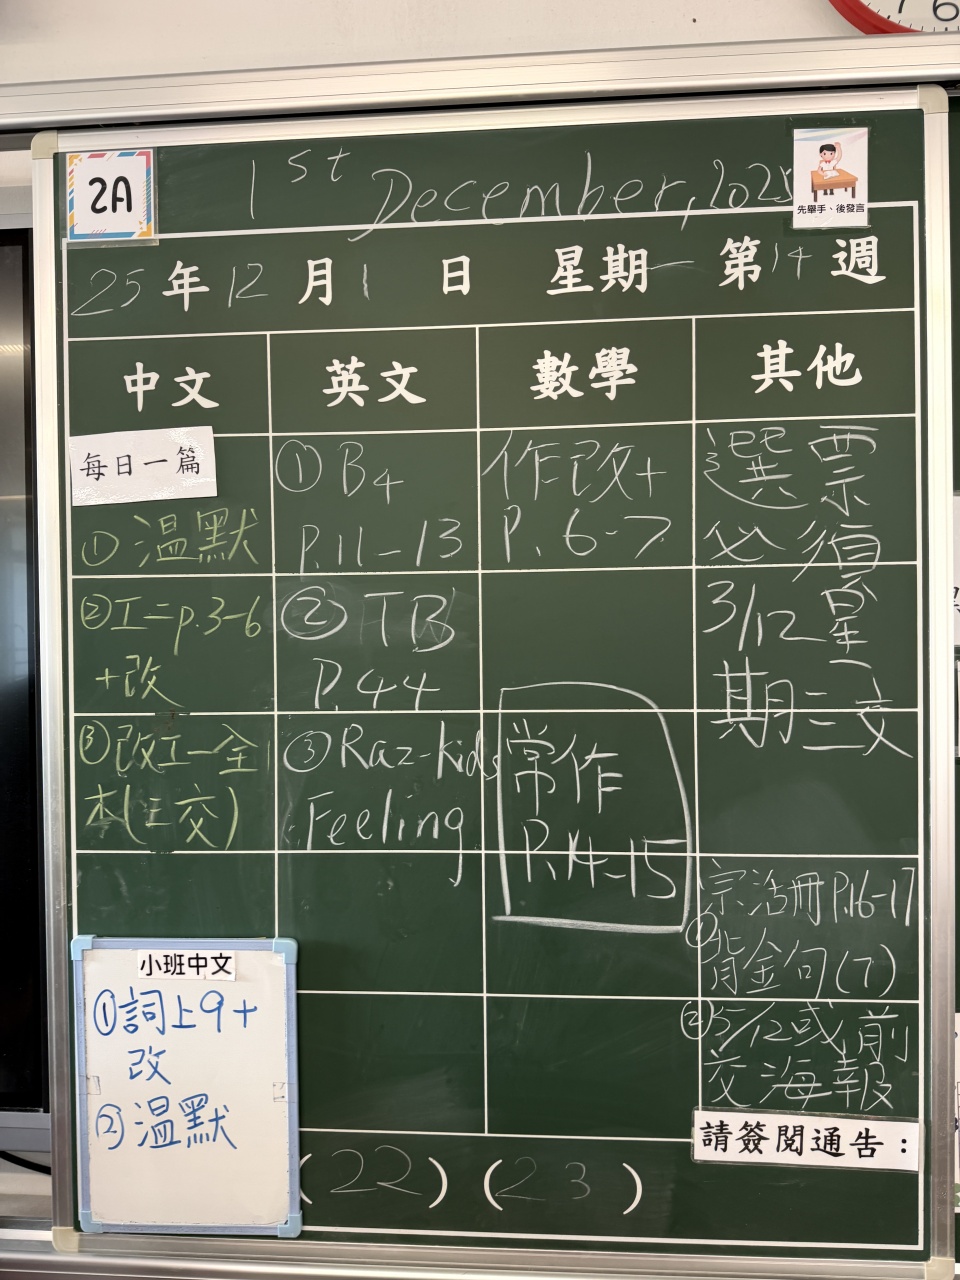 7 6
2A
1st December, 2025
先舉手、後發言
25年12月1日 星期一 第14週
中文 英文 數學 其他
每日一篇
①溫默
②工二p.3-6
+改
③改工一全
本(三交)
①B4
P.11-13
②TB
P.44
③Raz-kids
Feeling
作改+
P. 6-7
常作
P.14-15
選票
必須
3/12星
期三交
宗活冊P.16-17
①背金句(7)
②5/12或前
交海報
小班中文
①詞上9+
改
②溫默
請簽閱通告：
(22) (23)